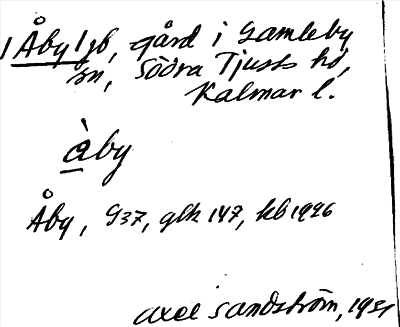 1 Åby 1 gb, gård i Gamleby
sn, Södra Tjusts hd,
Kalmar l.
àby
Åby, G37, glk 147, kb 1926
Axel Sandström, 1931